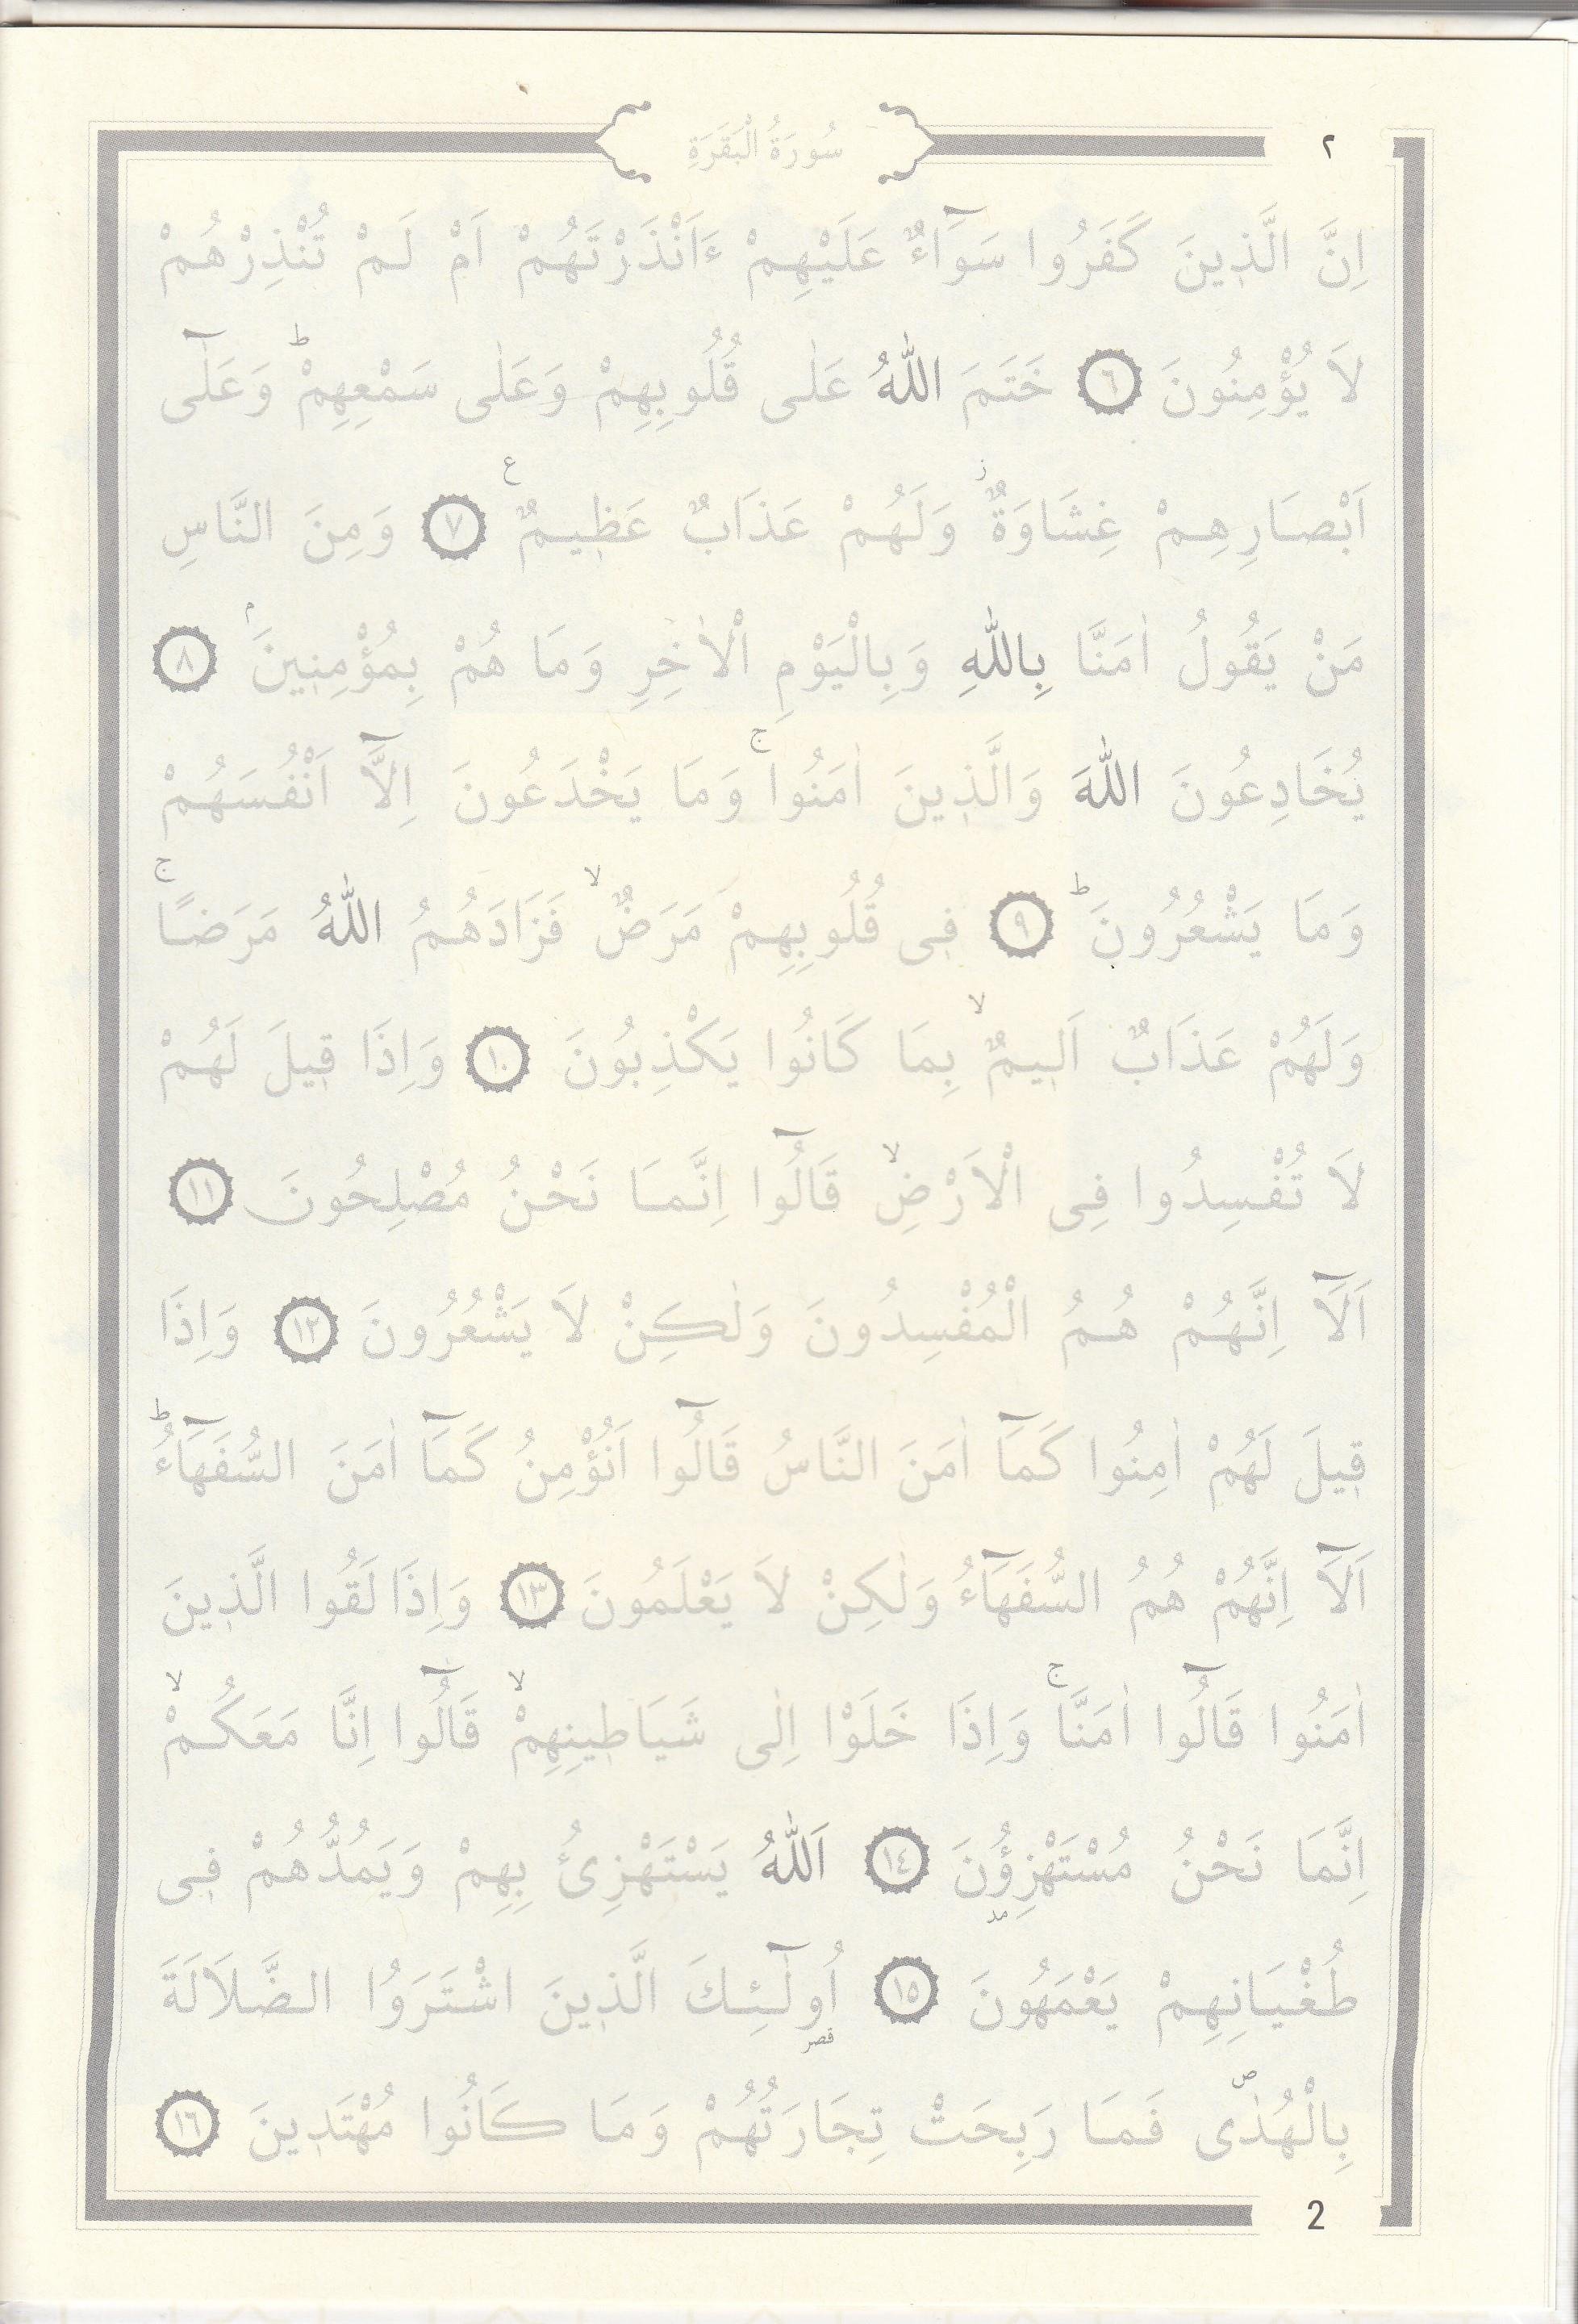 ٢
سُورَةُ الْبَقَرَةِ
اِنَّ الَّذ۪ينَ كَفَرُوا سَوَٓاءٌ عَلَيْهِمْ ءَاَنْذَرْتَهُمْ اَمْ لَمْ تُنْذِرْهُمْ
لَا يُؤْمِنُونَ ٦ خَتَمَ اللّٰهُ عَلٰى قُلُوبِهِمْ وَعَلٰى سَمْعِهِمْۜ وَعَلٰٓى
اَبْصَارِهِمْ غِشَاوَةٌۘ وَلَهُمْ عَذَابٌ عَظ۪يمٌ ع ٧ وَمِنَ النَّاسِ
مَنْ يَقُولُ اٰمَنَّا بِاللّٰهِ وَبِالْيَوْمِ الْاٰخِرِ وَمَا هُمْ بِمُؤْمِن۪ينَۢ ٨
يُخَادِعُونَ اللّٰهَ وَالَّذ۪ينَ اٰمَنُواۚ وَمَا يَخْدَعُونَ اِلَّٓا اَنْفُسَهُمْ
وَمَا يَشْعُرُونَۜ ٩ ف۪ى قُلُوبِهِمْ مَرَضٌۙ فَزَادَهُمُ اللّٰهُ مَرَضًاۚ
وَلَهُمْ عَذَابٌ اَل۪يمٌۙ بِمَا كَانُوا يَكْذِبُونَ ١٠ وَاِذَا ق۪يلَ لَهُمْ
لَا تُفْسِدُوا فِى الْاَرْضِۙ قَالُٓوا اِنَّمَا نَحْنُ مُصْلِحُونَ ١١
اَلَٓا اِنَّهُمْ هُمُ الْمُفْسِدُونَ وَلٰكِنْ لَا يَشْعُرُونَ ١٢ وَاِذَا
ق۪يلَ لَهُمْ اٰمِنُوا كَمَٓا اٰمَنَ النَّاسُ قَالُٓوا اَنُؤْمِنُ كَمَٓا اٰمَنَ السُّفَهَٓاءُۜ
اَلَٓا اِنَّهُمْ هُمُ السُّفَهَٓاءُ وَلٰكِنْ لَا يَعْلَمُونَ ١٣ وَاِذَا لَقُوا الَّذ۪ينَ
اٰمَنُوا قَالُٓوا اٰمَنَّاۚ وَاِذَا خَلَوْا اِلٰى شَيَاط۪ينِهِمْۙ قَالُٓوا اِنَّا مَعَكُمْۙ
اِنَّمَا نَحْنُ مُسْتَهْزِؤُ۫نَ مد ١٤ اَللّٰهُ يَسْتَهْزِئُ بِهِمْ وَيَمُدُّهُمْ ف۪ى
طُغْيَانِهِمْ يَعْمَهُونَ ١٥ اُو۬لٰٓئِكَ قصر الَّذ۪ينَ اشْتَرَوُا الضَّلَالَةَ
بِالْهُدٰىۖ فَمَا رَبِحَتْ تِجَارَتُهُمْ وَمَا كَانُوا مُهْتَد۪ينَ ١٦
2